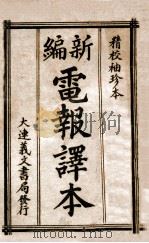 精校袖珍本
新編
電報譯本
大連義文書局發行